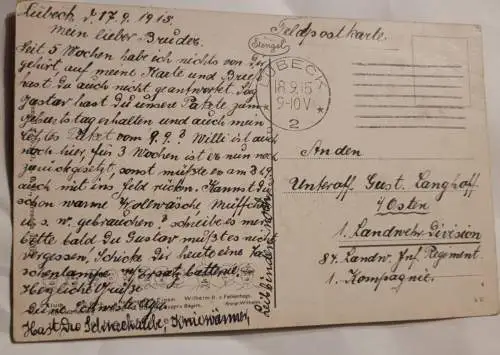 Lübeck, d. 17.9.1915.
Mein lieber Bruder.
Seit 5 Wochen habe ich nichts von Dir
gehört auf meine Karte und Brief
hast Du auch nicht geantwortet. Sag
Gustav hast Du unsere Pakete zum
Geburtstag erhalten und auch mein
Paket vom 9.9.? Willi ist auch
noch hier, für 3 Wochen ist er nun noch
zurückgesetzt, sonst müßte er am
auch mit ins Feld rücken. Kannst Du
schon warme Wollwäsche Müffchen
u. s. w. gebrauchen? schreibe es mir
bitte bald Du Gustav mußt es nicht
vergessen, Schicke Dir heute eine Ta-
schenlampe. Batterie.
Herzliche Grüße
Deine Schwester
Hast Du Kniewärmer,
Feldpostkarte.
Stengel
LÜBECK
18.9.15
9-10V
2
An den
Unteroff. Gust. Langhoff
z/Osten
1. Landwehr-Division
84. Landw. Inf. Regiment
1. Kompagnie.
Wilhelm II. v. Falkenhayn.